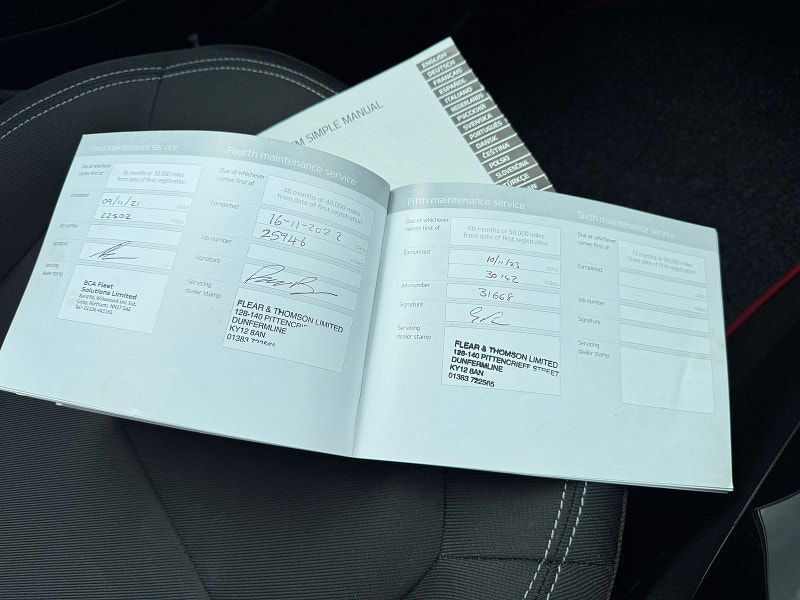 M SIMPLE MANUAL
ENGLISH
DEUTSCH
FRANÇAIS
ESPAÑOL
ITALIANO
NEDERLANDS
РУССКИЙ
SVENSKA
PORTUGUÊS
DANSK
ČEŠTINA
POLSKI
SLOVENČINA
TÜRKÇE
Third maintenance service
Due at whichever
comes first of
36 months or 30,000 miles
from date of first registration
Completed
09/11/21
date
22502
miles
Job number
Signature
Servicing
dealer stamp
BCA Fleet
Solutions Limited
Fourth maintenance service
Due at whichever
comes first of
48 months or 40,000 miles
from date of first registration
Completed
16-11-2022
date
25946
miles
Job number
Signature
Servicing
dealer stamp
FLEAR & THOMSON LIMITED
128-140 PITTENCRIEF
DUNFERMLINE
KY12 8AN
01383 722565
Fifth maintenance service
Due at whichever
comes first of
60 months or 50,000 miles
from date of first registration
Completed
10/11/23
date
30142
miles
Job number
31668
Signature
Servicing
dealer stamp
FLEAR & THOMSON LIMITED
128-140 PITTENCRIEFF STREET
DUNFERMLINE
KY12 8AN
01383 722565
Sixth maintenance service
Due at whichever
comes first of
72 months or 60,000 miles
from date of first registration
Completed
date
miles
Job number
Signature
Servicing
dealer stamp